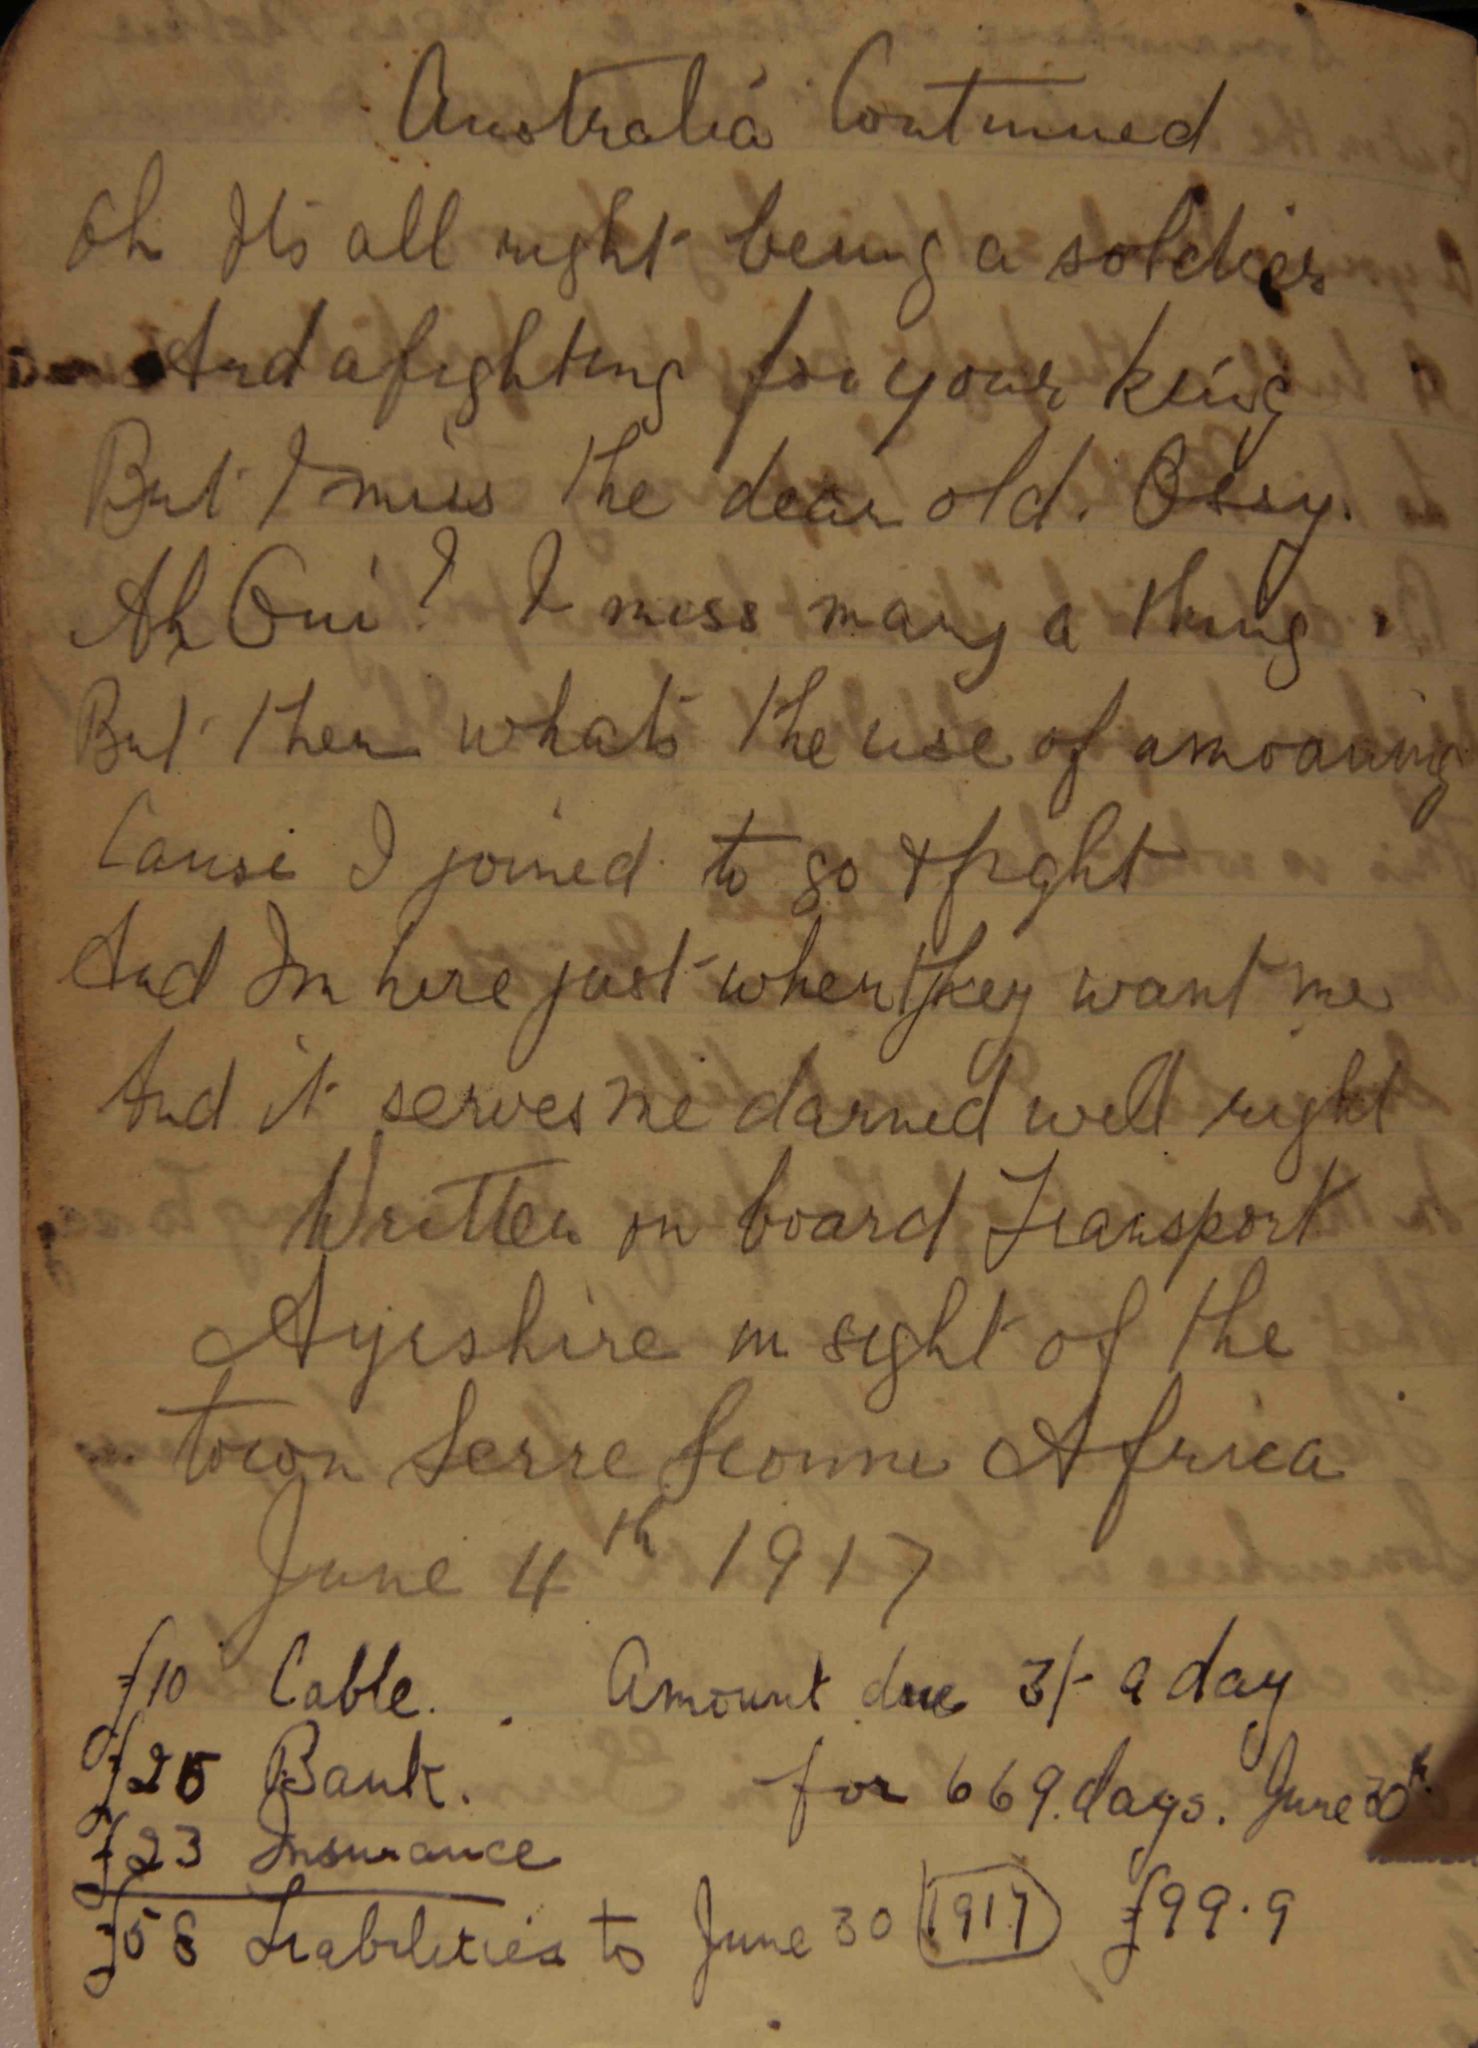 Australia Continued
Oh Its all right being a soldier
And afighting for your king
But I miss the dear old. Ossy.
Ah Oui? I miss many a thing.
But then whats the use of amoaning
Cause I joined to go & fight
And Im here just when they want me
And it serves me darned well right
Written on board Transport
Ayrshire in sight of the
town Serre Leonne Africa
June 4th 1917
£10 Cable. Amount due 3/- a day
£25 Bank. for 669. days. June 30th.
£23 Insurance
£58 Liabilities to June 30 1917 £99.9